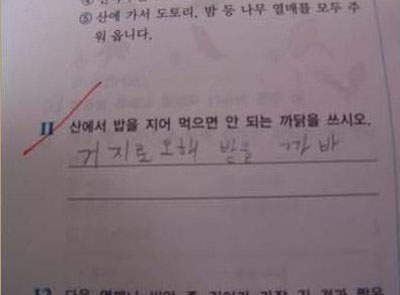 ⑤ 산에 가서 도토리, 밤 등 나무 열매를 모두 주
워 옵니다.
11 산에서 밥을 지어 먹으면 안 되는 까닭을 쓰시오.
거지로 오해 받을 까바
12 다음